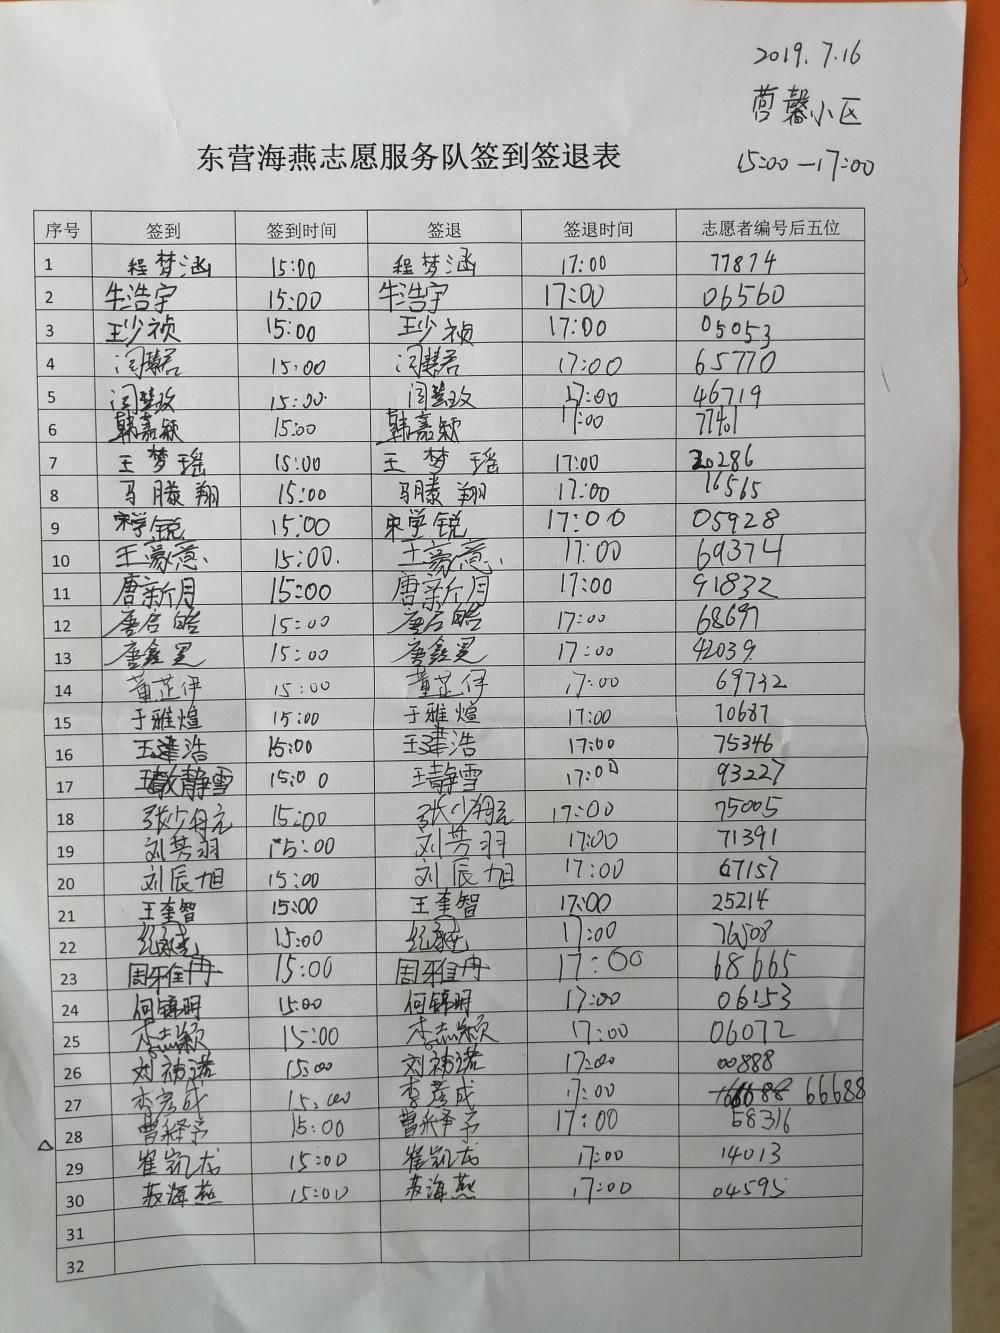 2019.7.16
营馨小区
15:00—17:00
东营海燕志愿服务队签到签退表
序号 签到 签到时间 签退 签退时间 志愿者编号后五位
1 程梦涵 15:00 程梦涵 17:00 77874
2 牛浩宇 15:00 牛浩宇 17:00 06560
3 王少祯 15:00 王少祯 17:00 05053
4 闫慧君 15:00 闫慧君 17:00 65770
5 闫慧玫 15:00 闫慧玫 17:00 46719
6 韩嘉颖 15:00 韩嘉颖 17:00
7 王梦瑶 15:00 王梦瑶 17:00 20286
8 马滕翔 15:00 马滕翔 17:00 16565
9 宋学锐 15:00 宋学锐 17:00 05928
10 王豪意 15:00 王豪意 17:00 69374
11 唐新月 15:00 唐新月 17:00 91832
12 唐启皓 15:00 唐启皓 17:00 68697
13 唐鑫 15:00 唐鑫 17:00 42039
14 董芷伊 15:00 董芷伊 17:00 69732
15 于雅煊 15:00 于雅煊 17:00 10687
16 王建浩 15:00 王建浩 17:00 75346
17 王静雪 15:00 王静雪 17:00 93227
18 15:00 17:00 75005
19 刘芳羽 15:00 刘芳羽 17:00 71391
20 刘辰旭 15:00 刘辰旭 17:00 67157
21 王奎智 15:00 王奎智 17:00 25214
22 15:00 17:00 76508
23 周雅冉 15:00 周雅冉 17:00 68665
24 何锦明 15:00 何锦明 17:00 06153
25 李志颖 15:00 李志颖 17:00 06072
26 刘祎诺 15:00 刘祎诺 17:00 00888
27 李彦成 15:00 李彦成 17:00 66688
28 曹释予 15:00 曹释予 17:00 58316
29 崔凯龙 15:00 崔凯龙 17:00 14013
30 苏海燕 15:00 苏海燕 17:00 04595
31
32